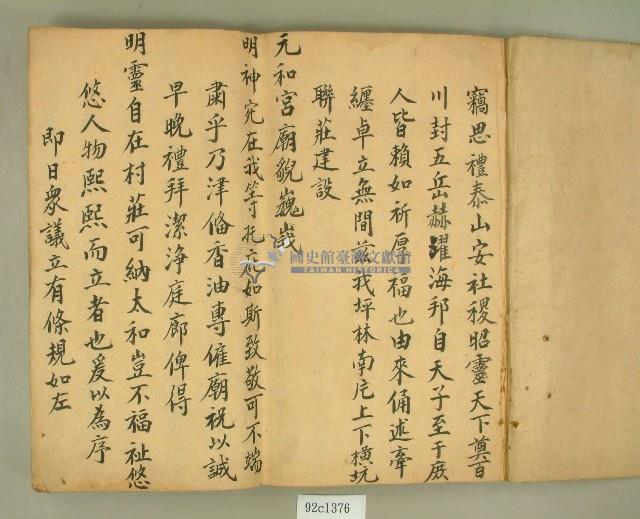 竊思禮泰山安社稷昭靈天下奠百
川封五岳赫濯海邦自天子至于庶
人皆賴如祈厚福也由來俑述牽
纏卓立無間茲我坪林南庀上下橫坑
聯莊建設
元和宮廟貌巍峩
明神宛在我等托 如斯致敬可不端
肅乎乃津俻香油專僱廟祝以誠
早晚禮拜潔淨庭廊俾得
明靈自在村莊可納太和豈不福祉悠
悠人物熙熙而立者也爰以為序
即日衆議立有條規如左
國史館臺灣文獻館
TAIWAN HISTORICA
92c1376